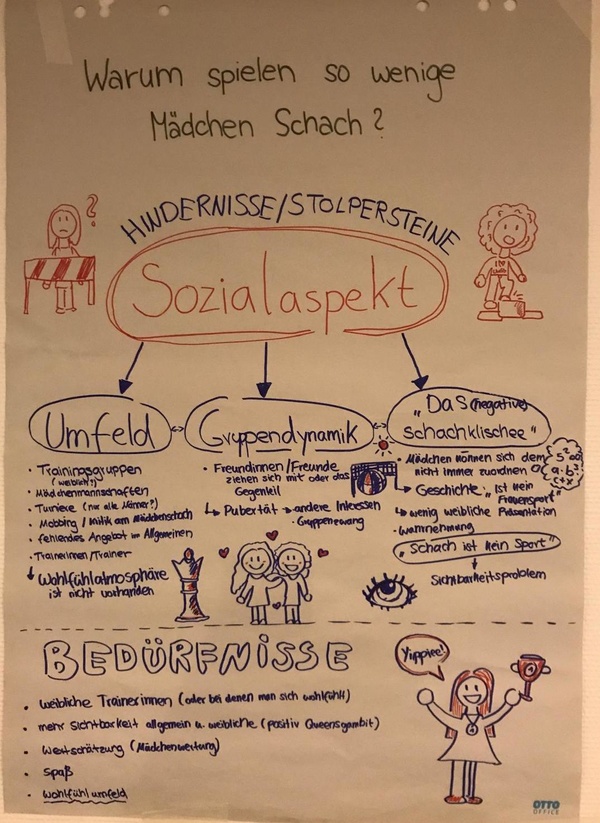 Warum spielen so wenige
Mädchen Schach?
HINDERNISSE/STOLPERSTEINE
?
Sozialaspekt
Umfeld
• Trainingsgruppen
(weiblich?)
• Mädchenmannschaften
• Turniere (nur alle Männer?)
• Mobbing / Kritik am Mädchenschach
• fehlendes Angebot im Allgemeinen
• Trainerinnen/Trainer
Wohlfühlatmosphäre
ist nicht vorhanden
Gruppendynamik
• Freundinnen/Freunde
ziehen sich mit oder das
Gegenteil
Pubertät → andere Interessen
• Gruppenzwang
"Das (negative)
Schachklischee"
• Mädchen können sich dem
nicht immer zuordnen
Geschichte: "Ist kein
Frauensport"
wenig weibliche Präsentation
• Wahrnehmung
"Schach ist kein Sport"
Sichtbarkeitsproblem
BEDÜRFNISSE
• weibliche Trainerinnen (oder bei denen man sich wohlfühlt)
• mehr Sichtbarkeit allgemein u. weibliche (positiv Queensgambit)
• Wertschätzung (Mädchenwertung)
• Spaß
• Wohlfühlumfeld
Yuppiee!
OTTO
OFFICE